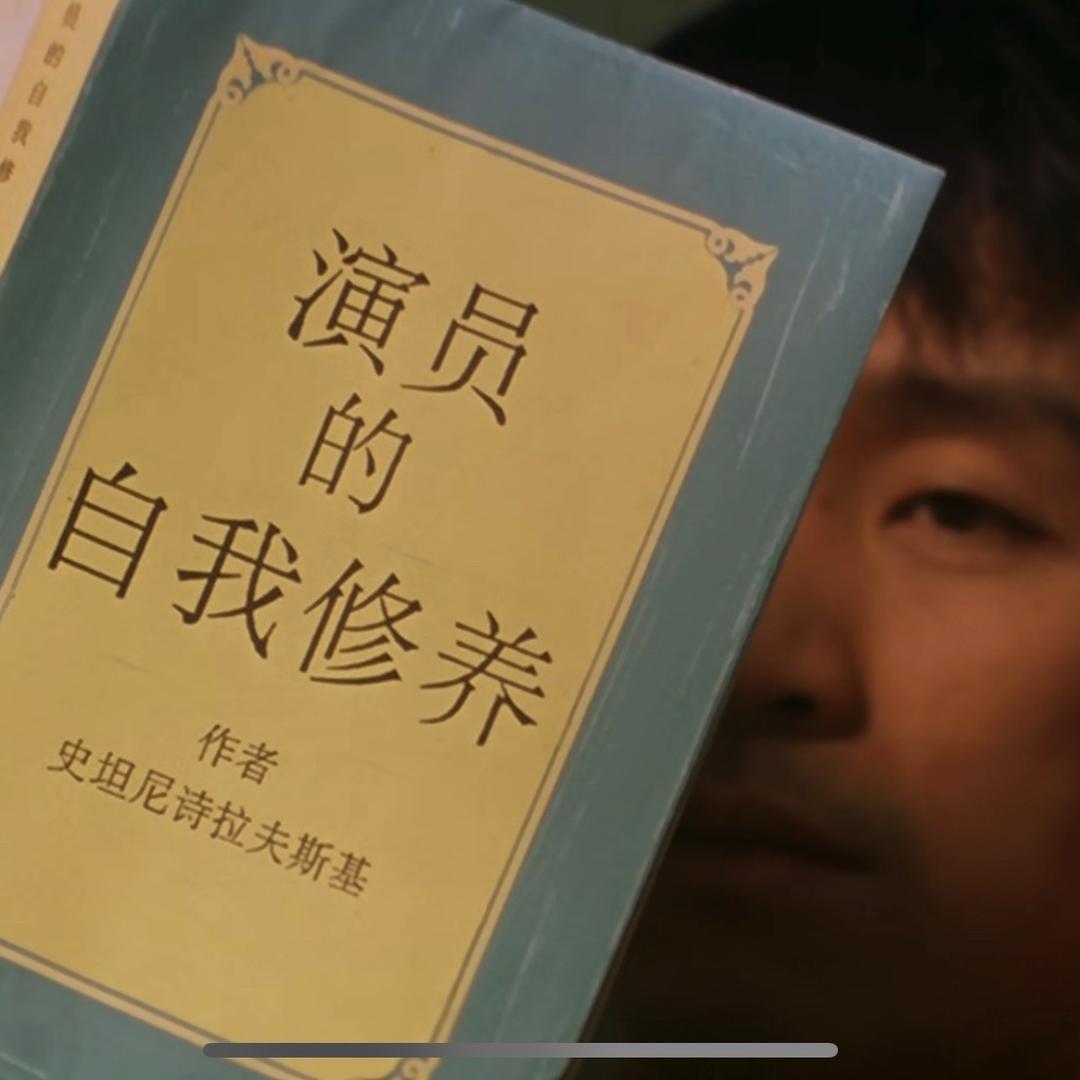 演员
的
自我修养
作者
史坦尼诗拉夫斯基
员的自我修